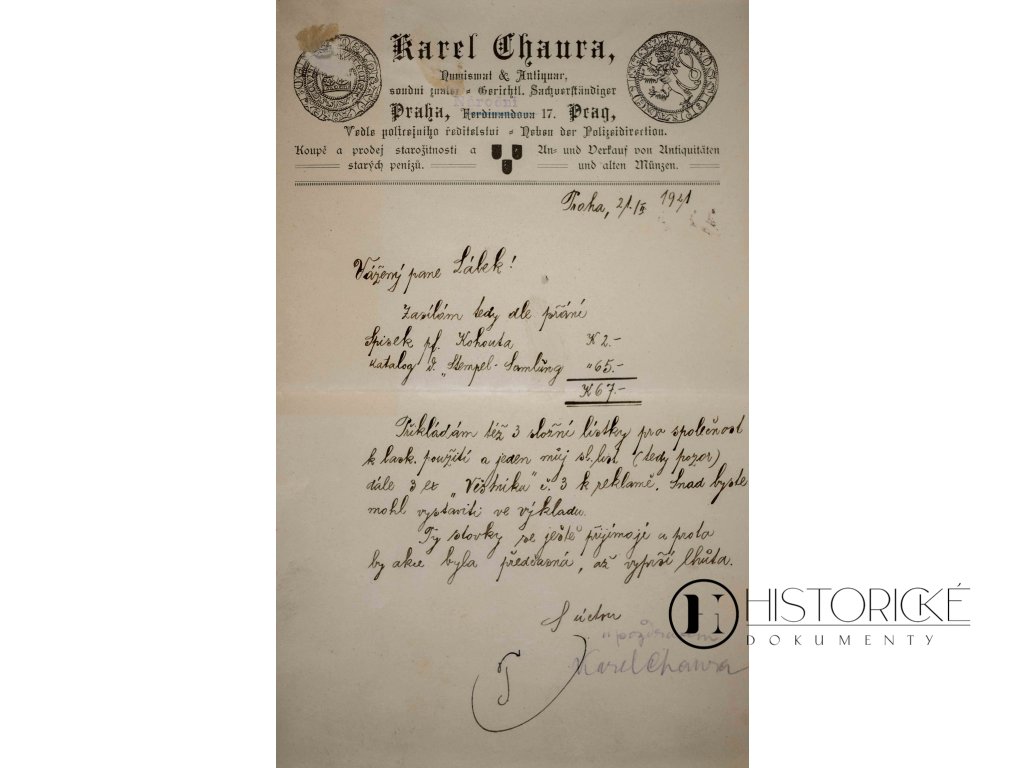 Karel Chaura,
Numismat & Antiquar,
soudní znalec - Gerichtl. Sachverständiger
Národní
Praha, Ferdinandova 17. Prag,
Vedle policejního ředitelství - Neben der Polizeidirection.
Koupě a prodej starožitností a An- und Verkauf von Antiquitäten
starých penízů. und alten Münzen.
Praha, 21./II 1921
Vážený pane Lábek!
Zasílám tedy dle přání
Spisek pf. Kohouta K 2.-
Katalog d. „Stempel-Samlung " 65.-
K 67.-
Přikládám též 3 složní lístky pro společnost
k lask. použití a jeden můj sl. list (tedy pozor)
dále 3 ex „Věstníku" č. 3 k reklamě. Snad byste
mohl vystaviti ve výkladu.
Ty stovky se ještě přijímají a proto
by akce byla předčasná, až vyprší lhůta.
S úctou
Karel Chaura
HISTORICKÉ
DOKUMENTY